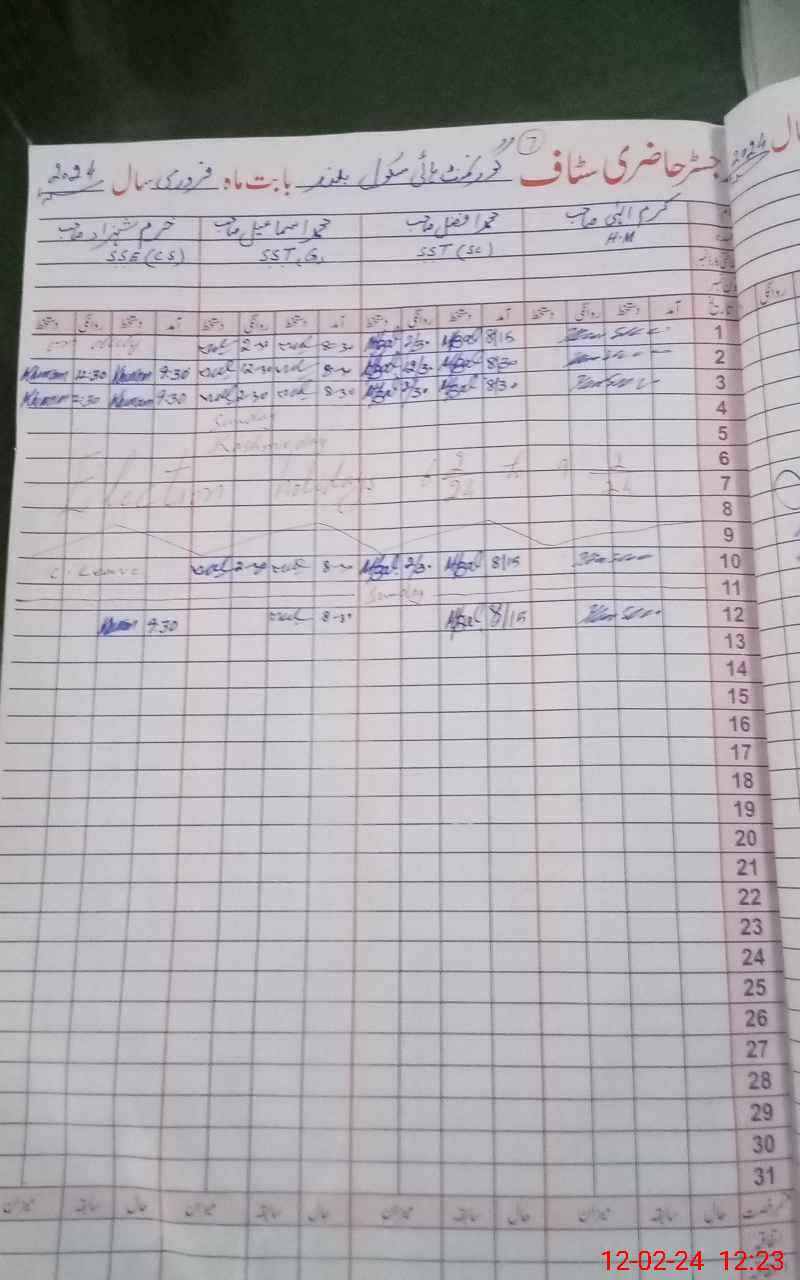 رجسٹر حاضری سٹاف گورنمنٹ ہائی سکول بابت ماہ فروری سال 2024
7
سال 2024
کرم الٰہی صاحب محمد افضل صاحب محمد اسماعیل صاحب خرم شہزاد صاحب
H.M SST (SC) SST, G, SSE (CS)
تاریخ آمد دستخط روانگی دستخط آمد دستخط روانگی دستخط آمد دستخط روانگی دستخط آمد دستخط روانگی دستخط
روانگی
on duty 2-30 8-30 Afzal 2/30 Afzal 8/15 1
Khuram 12:30 Khuram 9:30 12-30 Afzal 12/30 Afzal 8/30 2
Khuram 2:30 Khuram 9:30 2-30 8-30 Afzal 2/30 Afzal 8/30 3
Sunday 4
Kashmir day 5
6
Election holidays 6 2/24 to 9 2/24 7
8
9
C. Leave 2-30 8-30 Afzal 2/30 Afzal 8/15 10
Sunday 11
Khuram 9:30 8-30 Afzal 8/15 12
13
14
15
16
17
18
19
20
21
22
23
24
25
26
27
28
29
30
31
رخصت حال سابقہ میزان حال سابقہ میزان حال سابقہ میزان حال سابقہ میزان
اتفاقیہ
12-02-24 12:23